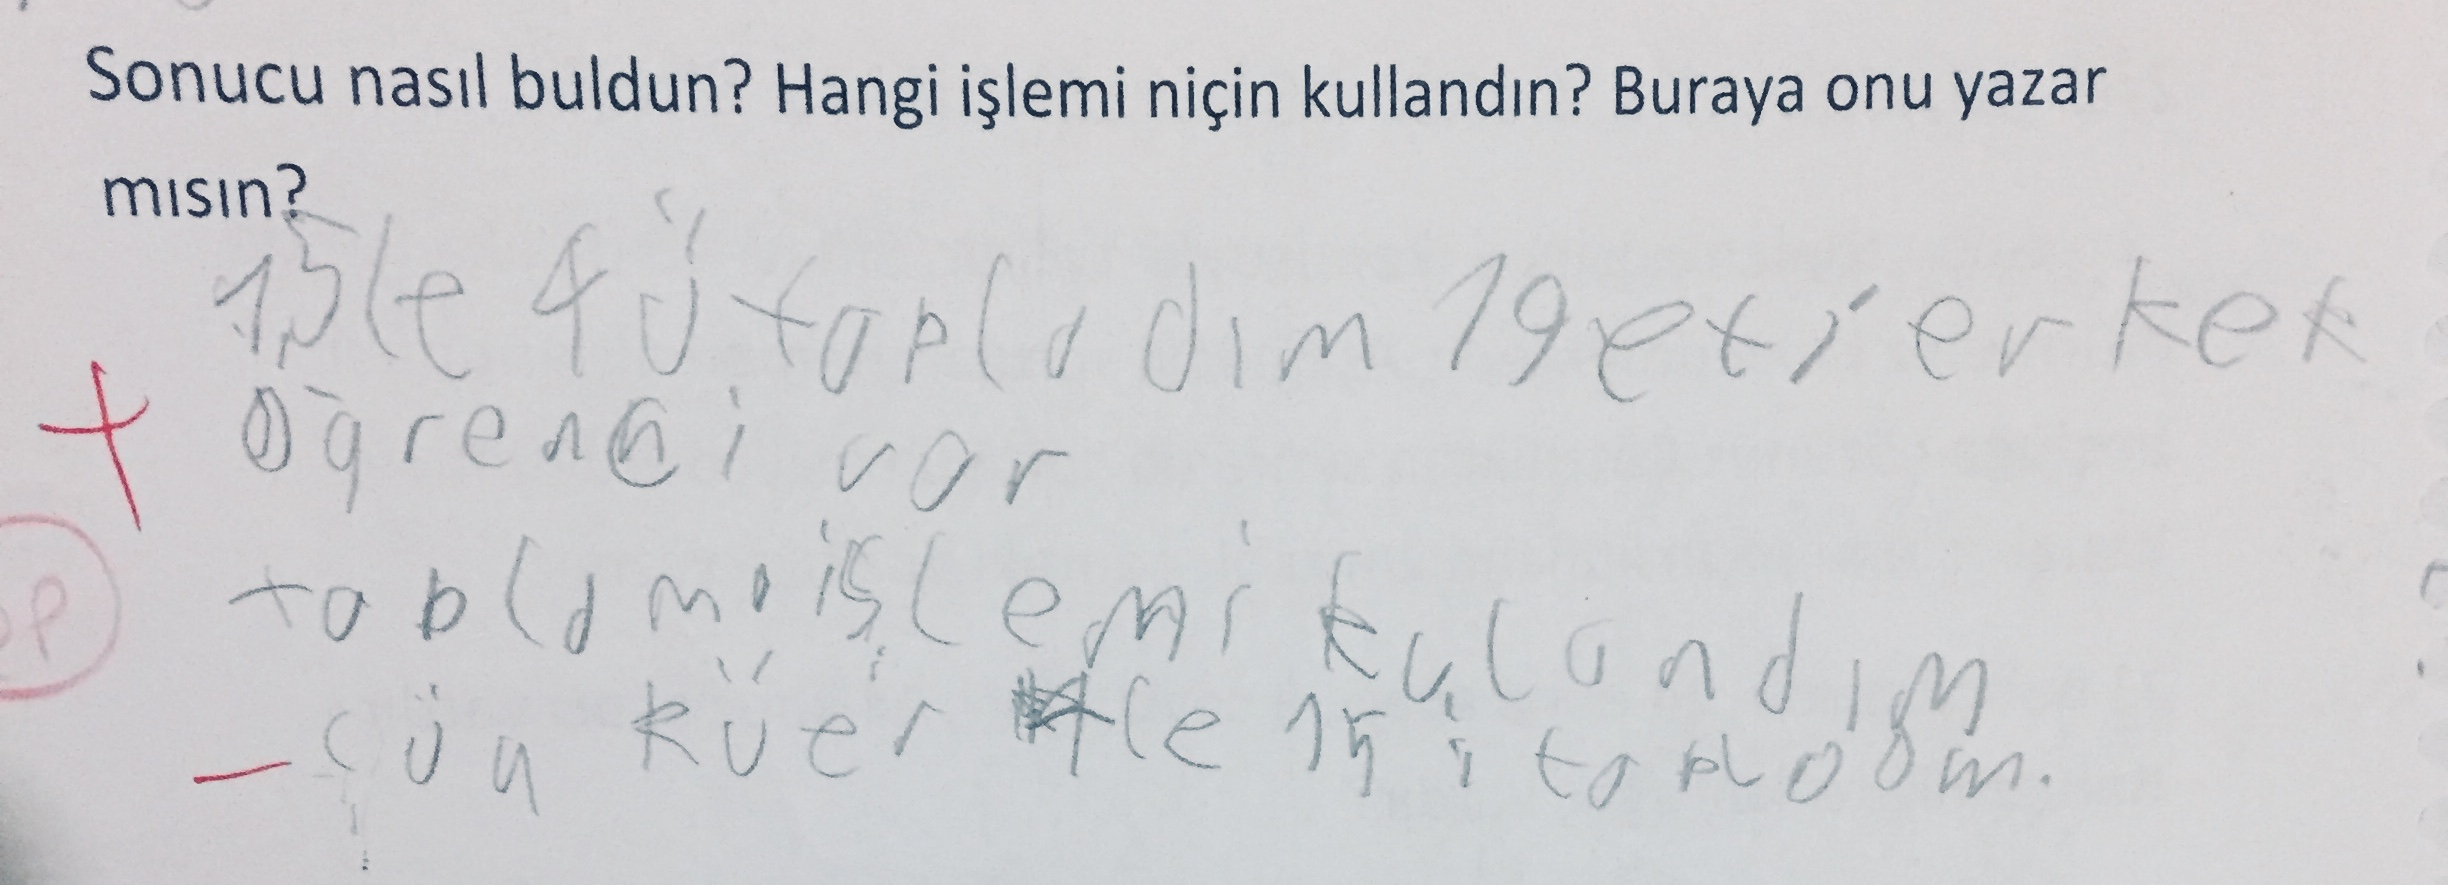 Sonucu nasıl buldun? Hangi işlemi niçin kullandın? Buraya onu yazar
mısın?
15le 4ü topladım 19 etti erkek
öğrenci var
+
tobloma işlemi kulandım
- çün küer 4le 15 i topladım.